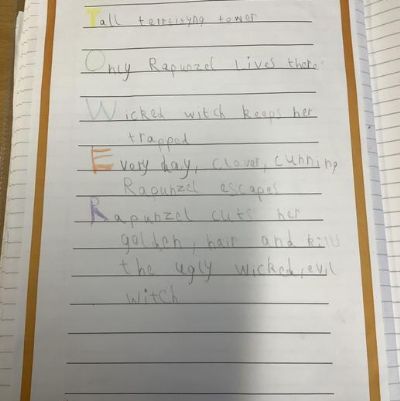 Tall terrifying tower
Only Rapunzel lives there
Wicked witch keeps her
trapped
Every day, clever, cunning
Rapunzel escapes
Rapunzel cuts her
golden, hair and kills
the ugly wicked, evil
witch